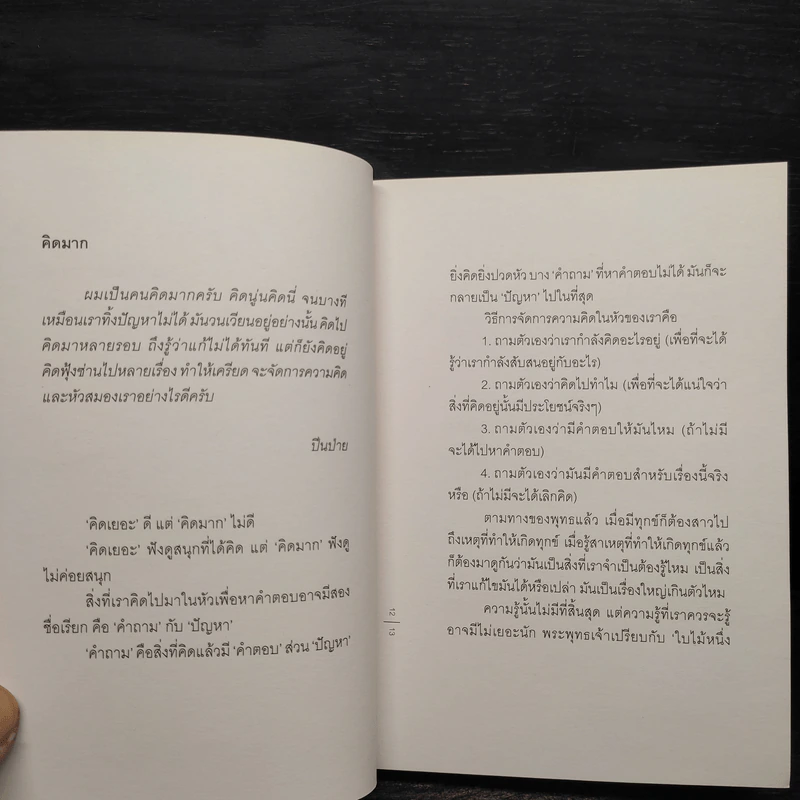 คิดมาก
ผมเป็นคนคิดมากครับ คิดนู่นคิดนี่ จนบางที
เหมือนเราทิ้งปัญหาไม่ได้ มันวนเวียนอยู่อย่างนั้น คิดไป
คิดมาหลายรอบ ถึงรู้ว่าแก้ไม่ได้ทันที แต่ก็ยังคิดอยู่
คิดฟุ้งซ่านไปหลายเรื่อง ทำให้เครียด จะจัดการความคิด
และหัวสมองเราอย่างไรดีครับ
ปีนป่าย
‘คิดเยอะ’ ดี แต่ ‘คิดมาก’ ไม่ดี
‘คิดเยอะ’ ฟังดูสนุกที่ได้คิด แต่ ‘คิดมาก’ ฟังดู
ไม่ค่อยสนุก
สิ่งที่เราคิดไปมาในหัวเพื่อหาคำตอบอาจมีสอง
ชื่อเรียก คือ ‘คำถาม’ กับ ‘ปัญหา’
‘คำถาม’ คือสิ่งที่คิดแล้วมี ‘คำตอบ’ ส่วน ‘ปัญหา’
ยิ่งคิดยิ่งปวดหัว บาง ‘คำถาม’ ที่หาคำตอบไม่ได้ มันก็จะ
กลายเป็น ‘ปัญหา’ ไปในที่สุด
วิธีการจัดการความคิดในหัวของเราคือ
1. ถามตัวเองว่าเรากำลังคิดอะไรอยู่ (เพื่อที่จะได้
รู้ว่าเรากำลังสับสนอยู่กับอะไร)
2. ถามตัวเองว่าคิดไปทำไม (เพื่อที่จะได้แน่ใจว่า
สิ่งที่คิดอยู่นั้นมีประโยชน์จริงๆ)
3. ถามตัวเองว่ามีคำตอบให้มันไหม (ถ้าไม่มี
จะได้ไปหาคำตอบ)
4. ถามตัวเองว่ามันมีคำตอบสำหรับเรื่องนี้จริง
หรือ (ถ้าไม่มีจะได้เลิกคิด)
ตามทางของพุทธแล้ว เมื่อมีทุกข์ก็ต้องสาวไป
ถึงเหตุที่ทำให้เกิดทุกข์ เมื่อรู้สาเหตุที่ทำให้เกิดทุกข์แล้ว
ก็ต้องมาดูกันว่ามันเป็นสิ่งที่เราจำเป็นต้องรู้ไหม เป็นสิ่ง
ที่เราแก้ไขมันได้หรือเปล่า มันเป็นเรื่องใหญ่เกินตัวไหม
ความรู้นั้นไม่มีที่สิ้นสุด แต่ความรู้ที่เราควรจะรู้
อาจมีไม่เยอะนัก พระพุทธเจ้าเปรียบกับ ‘ใบไม้หนึ่ง
12
13